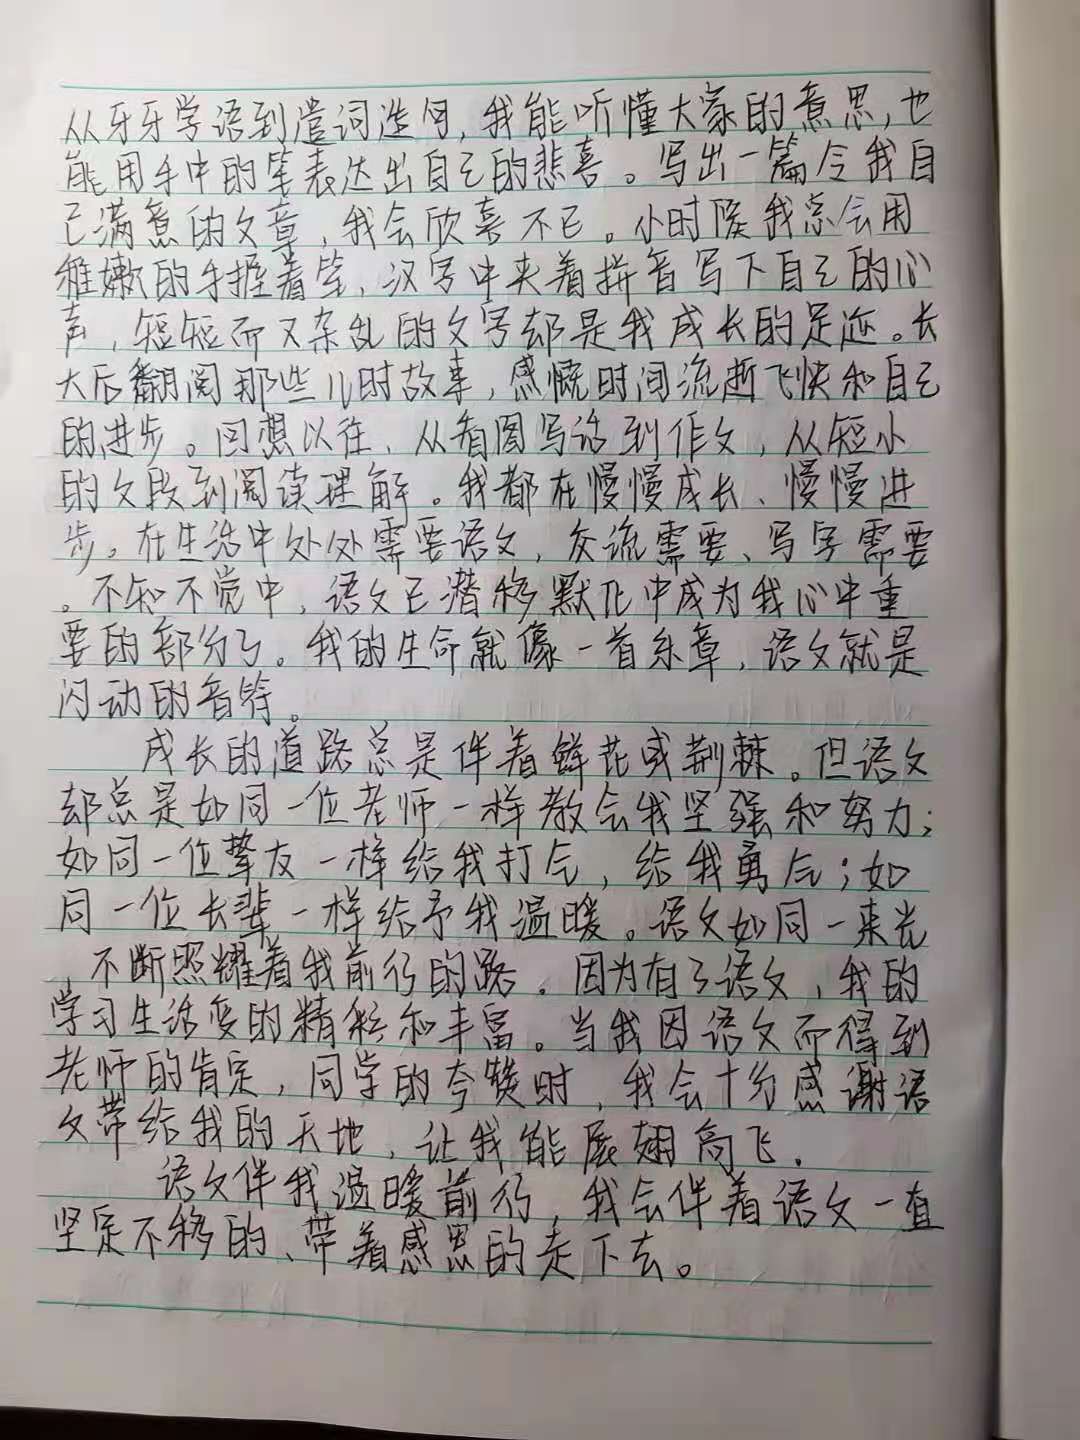 从牙牙学语到遣词造句，我能听懂大家的意思，也
能用手中的笔表达出自己的悲喜。写出一篇令我自
己满意的文章，我会欣喜不已。小时候我总会用
稚嫩的手握着笔，汉字中夹着拼音写下自己的心
声，短短而又杂乱的文字却是我成长的足迹。长
大后翻阅那些儿时故事，感慨时间流逝飞快和自己
的进步。回想以往，从看图写话到作文，从短小
的文段到阅读理解。我都在慢慢成长、慢慢进
步。在生活中处处需要语文，交流需要、写字需要
。不知不觉中，语文已潜移默化中成为我心中重
要的部分了。我的生命就像一首乐章，语文就是
闪动的音符。
成长的道路总是伴着鲜花或荆棘。但语文
却总是如同一位老师一样教会我坚强和努力；
如同一位挚友一样给我打气，给我勇气；如
同一位长辈一样给予我温暖。语文如同一束光
，不断照耀着我前行的路。因为有了语文，我的
学习生活变的精彩和丰富。当我因语文而得到
老师的肯定，同学的夸赞时，我会十分感谢语
文带给我的天地，让我能展翅高飞.
语文伴我温暖前行，我会伴着语文一直
坚定不移的、带着感恩的走下去。